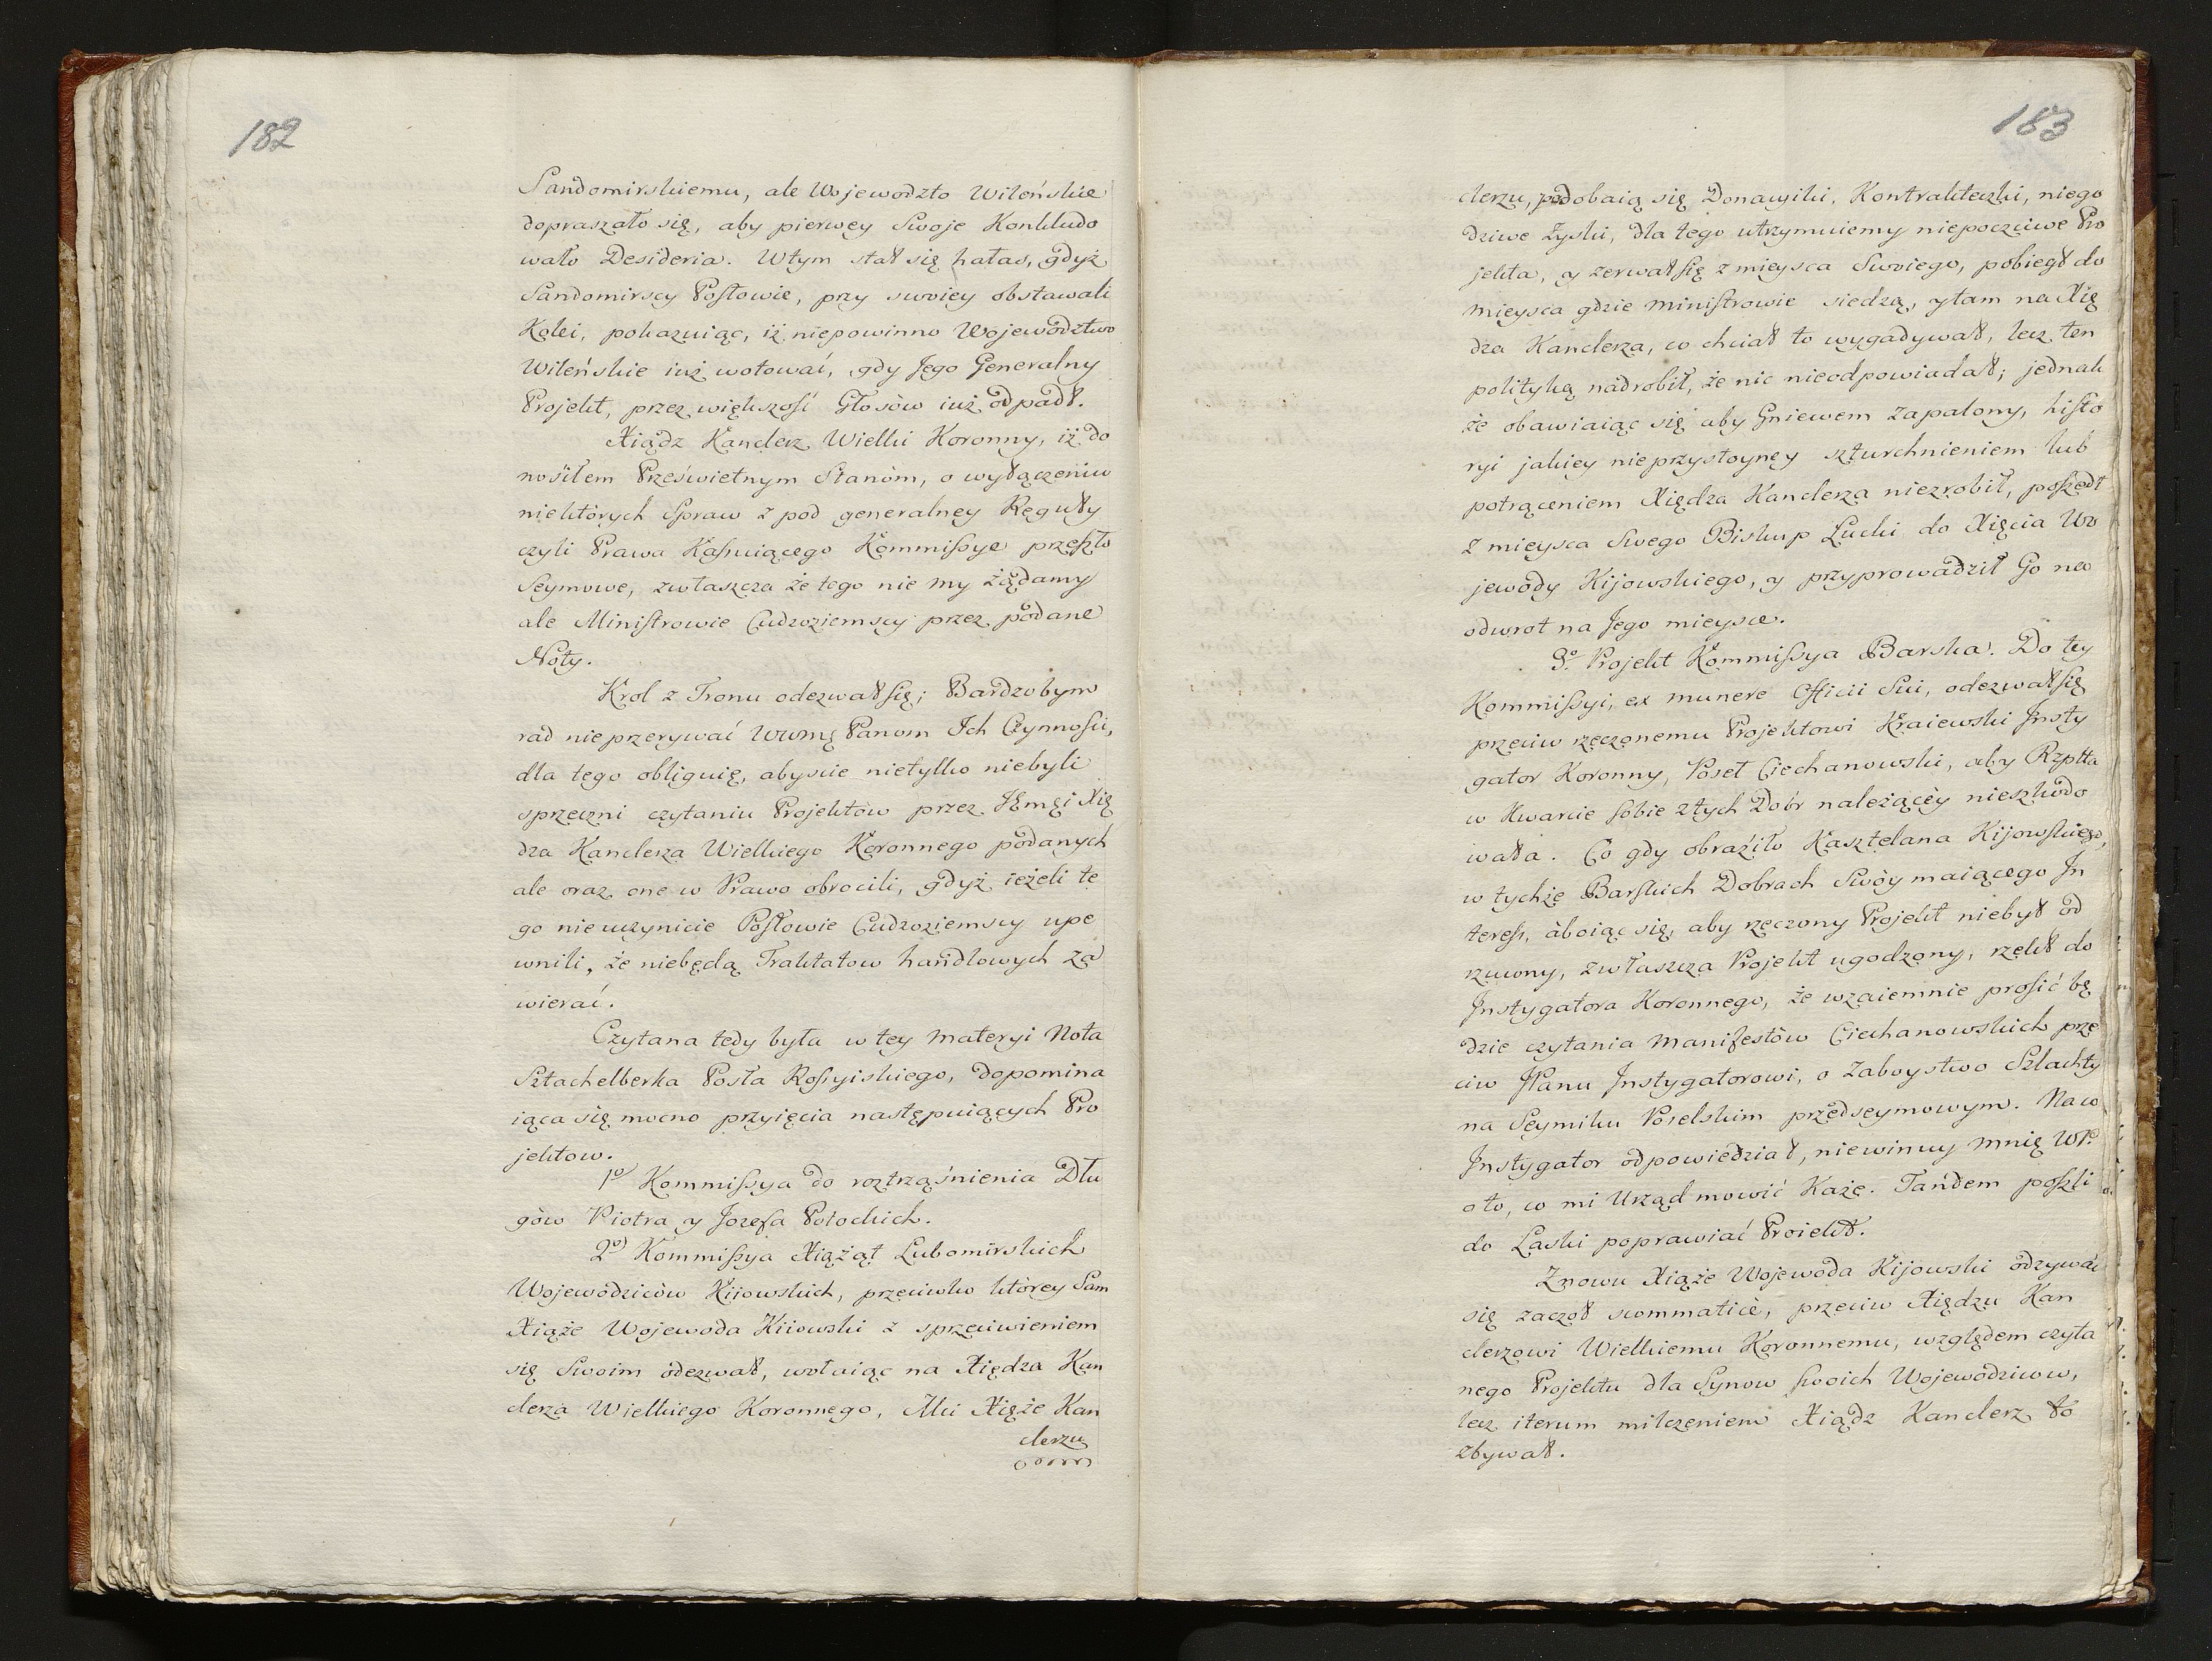 182
Sandomirskiemu, ale Wojewodzto Wileńskie
dopraszało się, aby pierwey Swoje Konkludo
wało Desideria. Wtym stał się hałas, gdyż
Sandomirscy Posłowie, przy swoiey obstawali
Kolei, pokazuiąc, iż niepowinno Wojewodztwo
Wileńskie iuż wotować, gdy Jego Generalny
Projekt, przez większość Głosòw iuż odpadł.
Xiądz Kanclerz Wielki Koronny, iż do
nosiłem Prześwietnym Stanòm, o wyłączeniu
niektòrych Spraw z pod generalney Reguły
czyli Prawa Kassuiącego Kommissye przeszło
Seymowe, zwłaszcza że tego nie my żądamy
ale Ministrowie Cudzoziemscy przez podane
Noty.
Krol z Tronu odezwał się; Bardzobym
rad nieprzerywać WWmę Panom Ich Czynności,
dla tego obliguię, abyscie nietylko niebyli
sprzeczni czytaniu Projektòw przez JEmęi Xię
dza Kanclerza Wielkiego Koronnego podanych
ale oraz one w Prawo obrocili, gdyż ieżeli te
go nieuczynicie Posłowie Cudzoziemscy upe
wnili, że niebędą Traktatow handlowych za
wierać.
Czytana tedy była w tey Materyi Nota
Sztachelberka Posła Rossyiskiego, dopomina
iąca się mocno przyięcia następuiących Pro
jektow.
1º Kommissya do roztrząśnienia Dłu
gòw Piotra y Jozefa Potockich.
2º) Kommissya Xiążąt Lubomirskich
Wojewodzicòw Kiiowskich, przeciwko ktòrey Sam
Xiąże Wojewoda Kiiowski z sprzeciwieniem
się Swoim odezwał, wołaiąc na Xiędza Kan
clerza Wielkiego Koronnego, Mci Xięże Kan
clerzu
183
clerzu, podobaią się Donawiki, Kontrakteczki, niego
dziwe Zyski, dla tego utrzymuiemy niepoczciwe Pro
jekta, y zerwał się z mieysca Swoiego, pobiegł do
mieysca gdzie Ministrowie siedzą, y tam na Xię
dza Kanclerza, co chciał to wygadywał, lecz ten
polityką nadrobił, że nic nieodpowiadał; jednak
że obawiaiąc się aby Gniewem zapalony, histo
ryi jakiey nieprzystoyney szturchnieniem lub
potrąceniem Xiędza Kanclerza niezrobił, poszedł
z mieysca Swego Biskup Łucki do Xięcia Wo
jewody Kijowskiego, y przyprowadził Go na
odwrot na Jego mieysce.
3º. Projekt Kommissya Barska. Do tey
Kommissyi, ex munere Officii Sui, odezwał się
przeciw rzeczonemu Projektowi Kraiewski Insty
gator Koronny, Poseł Ciechanowski, aby Rzptta
w Kwarcie sobie z tych Dobr należącèy nieszkodo
wała. Co gdy obraziło Kasztelana Kijowskiego,
w tychże Barskich Dobrach Swòy maiącego In
teress, àboiąc się, aby rzeczony Projekt niebył od
rzucony, zwłaszcza Projekt ugodzony, rzekł do
Instygatora Koronnego, że wzaiemnie prosić bę
dzie czytania Manifestòw Ciechanowskich prze
ciw JPanu Instygatorowi, o Zaboystwo Szlachty
na Seymiku Poselskim przedseymowym. Na co
Instygator odpowiedział, niewinuy mnię WP.
o to, co mi Urząd mowić Każe. Tandem poszli
do Laski poprawiać Proiekt.
Znowu Xiąże Wojewoda Kijowski odzywać
się zaczoł scommaticè, przeciw Xiędzu Kan
clerzowi Wielkiemu Koronnemu, względem czyta
nego Projektu dla Synow swoich Wojewodzicow,
lecz iterum milczeniem Xiądz Kanclerz to
zbywał.